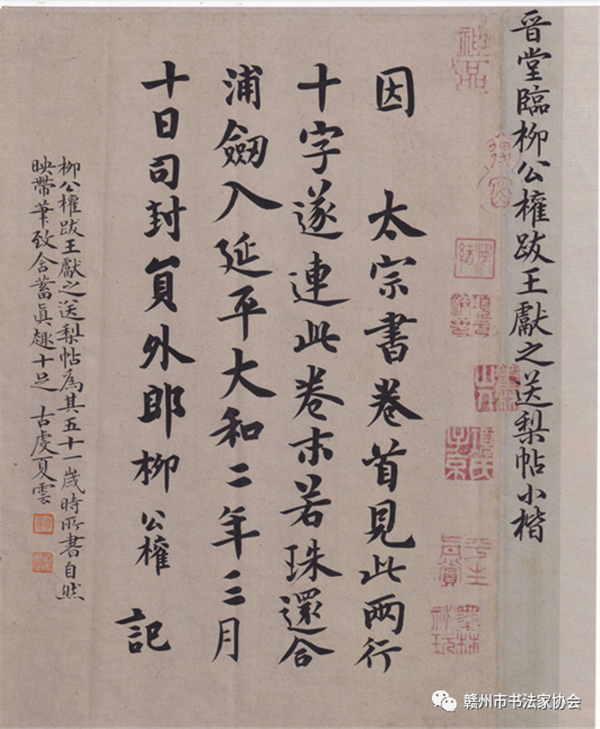 晉堂臨柳公權跋王獻之送梨帖小楷
因 太宗書卷首見此兩行
十字遂連此卷末若珠還合
浦劔入延平大和二年三月
十日司封員外郎柳公權 記
柳公權跋王獻之送梨帖為其五十一歲時所書自然
映帶筆致含蓄真趣十足 古虞夏雲
神品
項元汴
子京
項氏
平生
真賞
墨林
祕玩
赣州市书法家协会